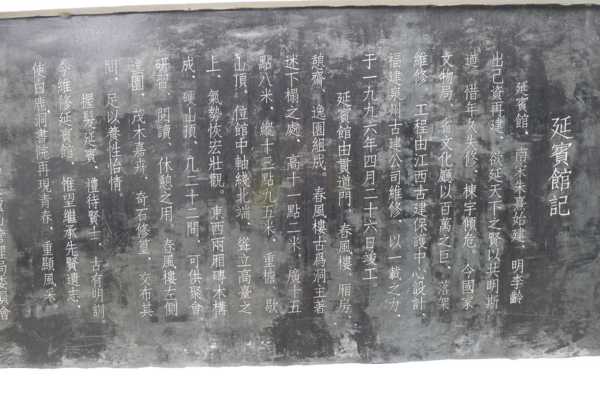 延賓館記
延賓館，南宋朱熹始建，明李齡
出己資再建，欲延天下之賢以共明斯
道。惜年久失修，棟宇傾危，今國家
文物局、省文化廳以百萬之巨，落架
維修，工程由江西古建保護中心設計，
福建泉州古建公司維修，以一載之力，
于一九九六年四月二十六日竣工。
延賓館由貫道門、春風樓、廂房、
憩齋、逸園組成。春風樓古爲洞主著
述下榻之處，高十一點二米，廣十五
點八米，縱十三點九五米，重檐，歇
山頂，位館中軸綫北端，聳立高臺之
上，氣勢恢宏壯觀。東西兩廂磚木構
成，硬山頂，凡二十二間，可供聚會、
研習、閱讀、休憩之用。春風樓左側
逸園，茂木嘉卉，奇石修篁，交布其
間，足以養性怡情。
握髮延賓，禮待賢士，古有明訓，
今維修延賓館，惟望繼承先賢遺志，
使白鹿洞書院再現青春，重顯風采。
管理局委員會